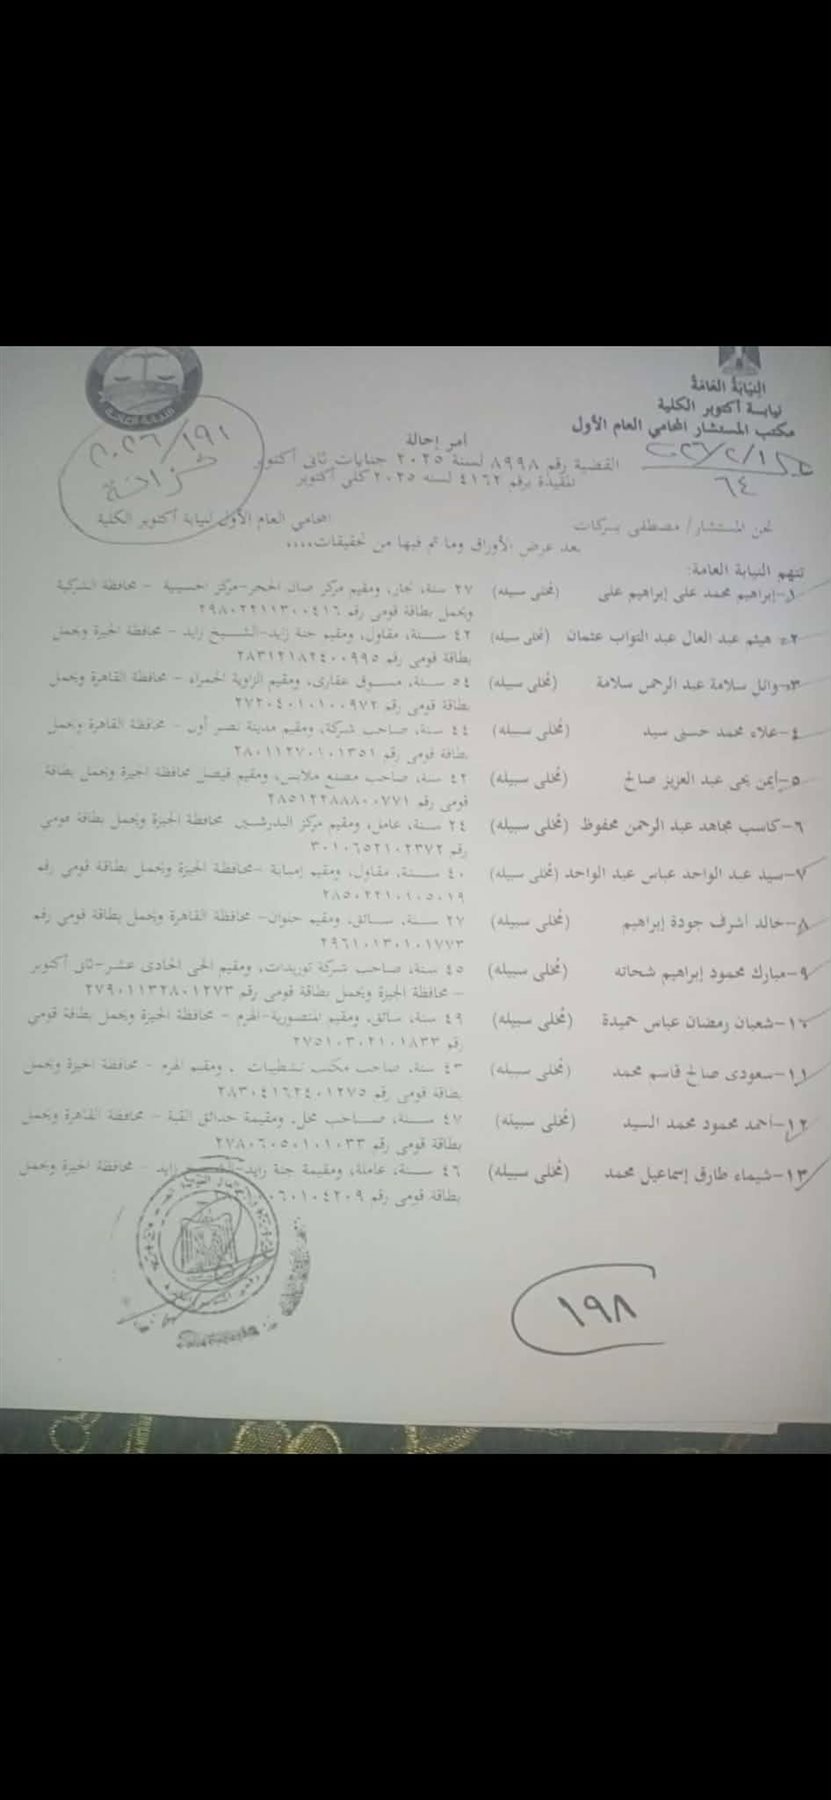 النيابة العامة
نيابة أكتوبر الكلية
مكتب المستشار المحامي العام الأول
٦٤
١٩١/٢٠٢٦
خزانة
أمر إحالة
القضية رقم ٨٩٩٨ لسنة ٢٠٢٥ جنايات ثاني أكتوبر
المقيدة برقم ٤١٦٢ لسنة ٢٠٢٥ كلي أكتوبر
نحن المستشار/ مصطفى بركات المحامي العام الأول لنيابة أكتوبر الكلية
بعد عرض الأوراق وما تم فيها من تحقيقات....
تتهم النيابة العامة:
١-إبراهيم محمد على إبراهيم على (مُخلى سبيله) ٢٧ سنة، نجار، ومقيم مركز صان الحجر-مركز الحسينية - محافظة الشرقية
ويحمل بطاقة قومى رقم ٢٩٨٠٢٢١١٣٠٠٤١٦
٢- هيثم عبد العال عبد التواب عثمان (مُخلى سبيله) ٤٢ سنة، مقاول، ومقيم جنة زايد-الشيخ زايد - محافظة الجيزة ويحمل
بطاقة قومى رقم ٢٨٣١٢١٨٢٤٠٠٩٩٥
٣-وائل سلامة عبد الرحمن سلامة (مُخلى سبيله) ٥٤ سنة، مسوق عقارى، ومقيم الزاوية الحمراء - محافظة القاهرة ويحمل
بطاقة قومى رقم ٢٧٢٠٤٠١٠١٠٠٩٧٢
٤-علاء محمد حسنى سيد (مُخلى سبيله) ٤٤ سنة، صاحب شركة، ومقيم مدينة نصر أول - محافظة القاهرة ويحمل
بطاقة قومى رقم ٢٨٠١١٢٧٠١٠١٣٥١
٥-أيمن يحى عبد العزيز صالح (مُخلى سبيله) ٤٢ سنة، صاحب مصنع ملابس، ومقيم فيصل محافظة الجيزة ويحمل بطاقة
قومى رقم ٢٨٥١٢٢٨٨٨٠٠٧٧١
٦-كاسب مجاهد عبد الرحمن محفوظ (مُخلى سبيله) ٢٤ سنة، عامل، ومقيم مركز البدرشين محافظة الجيزة ويحمل بطاقة قومى
رقم ٣٠١٠٦٥٢١٠٢٣٧٢
٧-سيد عبد الواحد عباس عبد الواحد (مُخلى سبيله) ٤٠ سنة، مقاول، ومقيم إمبابة -محافظة الجيزة ويحمل بطاقة قومى رقم
٢٨٥٠٢٢١٠١٠٥٠١٩
٨-خالد أشرف جودة إبراهيم (مُخلى سبيله) ٢٧ سنة، سائق، ومقيم حلوان- محافظة القاهرة ويحمل بطاقة قومى رقم
٢٩٦١٠١٣٠١٠١٧٧٣
٩-مبارك محمود إبراهيم شحاته (مُخلى سبيله) ٤٥ سنة، صاحب شركة توريدات، ومقيم الحى الحادى عشر-ثانى أكتوبر
- محافظة الجيزة ويحمل بطاقة قومى رقم ٢٧٩٠١١٣٢٨٠١٢٧٣
١٠-شعبان رمضان عباس حميدة (مُخلى سبيله) ٤٩ سنة، سائق، ومقيم المنصورية-الهرم - محافظة الجيزة ويحمل بطاقة قومى
رقم ٢٧٥١٠٣٠٢١٠١٨٣٣
١١-سعودى صالح قاسم محمد (مُخلى سبيله) ٤٣ سنة، صاحب مكتب تشطيبات ، ومقيم الهرم - محافظة الجيزة ويحمل
بطاقة قومى رقم ٢٨٣٠٤١٦٢٤٠١٢٧٥
١٢-أحمد محمود محمد السيد (مُخلى سبيله) ٤٧ سنة، صاحب محل، ومقيمة حدائق القبة - محافظة القاهرة ويحمل
بطاقة قومى رقم ٢٧٨٠٦٠٥٠١٠١٠٣٣
١٣-شيماء طارق إسماعيل محمد (مُخلى سبيله) ٤٦ سنة، عاملة، ومقيمة جنة زايد- زايد - محافظة الجيزة ويحمل
بطاقة قومى رقم ٠٦٠١٠٤٢٠٩
١٩٨